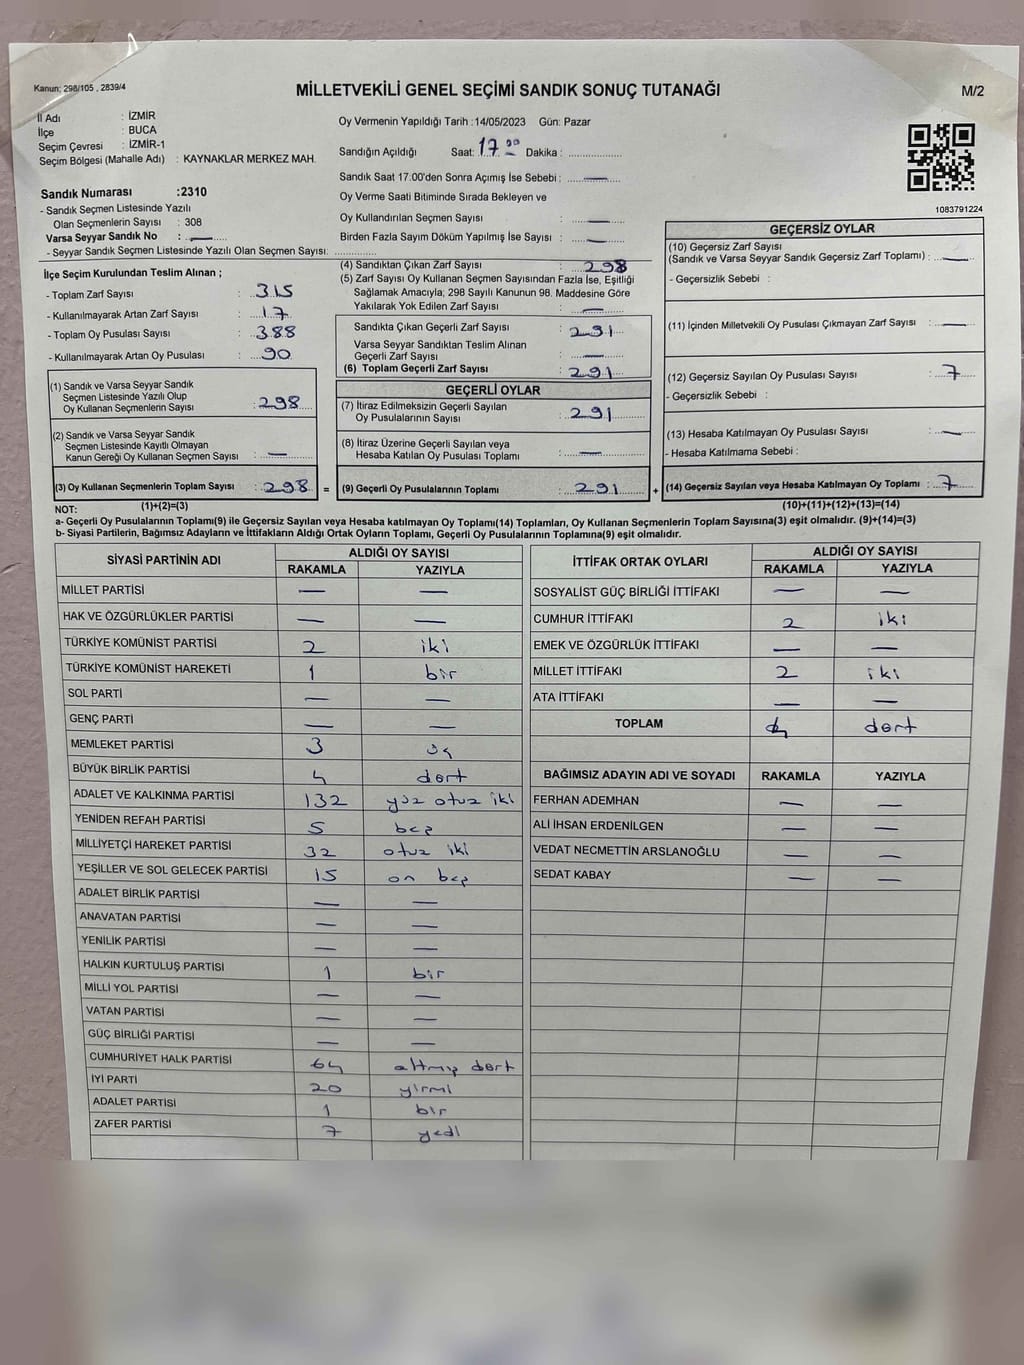 Kanun; 298/105 , 2839/4
MİLLETVEKİLİ GENEL SEÇİMİ SANDIK SONUÇ TUTANAĞI
M/2
İl Adı : İZMİR
İlçe : BUCA
Seçim Çevresi : İZMİR-1
Seçim Bölgesi (Mahalle Adı) : KAYNAKLAR MERKEZ MAH.
Oy Vermenin Yapıldığı Tarih :14/05/2023 Gün: Pazar
Sandığın Açıldığı Saat: 17 00 Dakika :
Sandık Saat 17:00'den Sonra Açımış İse Sebebi : —
Oy Verme Saati Bitiminde Sırada Bekleyen ve
Oy Kullandırılan Seçmen Sayısı : —
Birden Fazla Sayım Döküm Yapılmış İse Sayısı : —
1083791224
Sandık Numarası :2310
- Sandık Seçmen Listesinde Yazılı
Olan Seçmenlerin Sayısı : 308
Varsa Seyyar Sandık No : —
- Seyyar Sandık Seçmen Listesinde Yazılı Olan Seçmen Sayısı:
İlçe Seçim Kurulundan Teslim Alınan ;
- Toplam Zarf Sayısı : 315
- Kullanılmayarak Artan Zarf Sayısı : 17
- Toplam Oy Pusulası Sayısı : 388
- Kullanılmayarak Artan Oy Pusulası : 90
(1) Sandık ve Varsa Seyyar Sandık
Seçmen Listesinde Yazılı Olup
Oy Kullanan Seçmenlerin Sayısı : 298
(2) Sandık ve Varsa Seyyar Sandık
Seçmen Listesinde Kayıtlı Olmayan
Kanun Gereği Oy Kullanan Seçmen Sayısı : —
(3) Oy Kullanan Seçmenlerin Toplam Sayısı : 298 =
(1)+(2)=(3)
(4) Sandıktan Çıkan Zarf Sayısı : 298
(5) Zarf Sayısı Oy Kullanan Seçmen Sayısından Fazla İse, Eşitliği
Sağlamak Amacıyla; 298 Sayılı Kanunun 98. Maddesine Göre
Yakılarak Yok Edilen Zarf Sayısı : —
Sandıkta Çıkan Geçerli Zarf Sayısı : 291
Varsa Seyyar Sandıktan Teslim Alınan
Geçerli Zarf Sayısı : —
(6) Toplam Geçerli Zarf Sayısı : 291
GEÇERLİ OYLAR
(7) İtiraz Edilmeksizin Geçerli Sayılan
Oy Pusulalarının Sayısı : 291
(8) İtiraz Üzerine Geçerli Sayılan veya
Hesaba Katılan Oy Pusulası Toplamı : —
(9) Geçerli Oy Pusulalarının Toplamı : 291 +
GEÇERSİZ OYLAR
(10) Geçersiz Zarf Sayısı
(Sandık ve Varsa Seyyar Sandık Geçersiz Zarf Toplamı) : —
- Geçersizlik Sebebi :
(11) İçinden Milletvekili Oy Pusulası Çıkmayan Zarf Sayısı : —
(12) Geçersiz Sayılan Oy Pusulası Sayısı : 7
- Geçersizlik Sebebi :
(13) Hesaba Katılmayan Oy Pusulası Sayısı : —
- Hesaba Katılmama Sebebi :
(14) Geçersiz Sayılan veya Hesaba Katılmayan Oy Toplamı : 7
(10)+(11)+(12)+(13)=(14)
NOT:
a- Geçerli Oy Pusulalarının Toplamı(9) ile Geçersiz Sayılan veya Hesaba katılmayan Oy Toplamı(14) Toplamları, Oy Kullanan Seçmenlerin Toplam Sayısına(3) eşit olmalıdır. (9)+(14)=(3)
b- Siyasi Partilerin, Bağımsız Adayların ve İttifakların Aldığı Ortak Oyların Toplamı, Geçerli Oy Pusulalarının Toplamına(9) eşit olmalıdır.
SİYASİ PARTİNİN ADI ALDIĞI OY SAYISI
RAKAMLA YAZIYLA
MİLLET PARTİSİ — —
HAK VE ÖZGÜRLÜKLER PARTİSİ — —
TÜRKİYE KOMÜNİST PARTİSİ 2 iki
TÜRKİYE KOMÜNİST HAREKETİ 1 bir
SOL PARTİ — —
GENÇ PARTİ — —
MEMLEKET PARTİSİ 3 üç
BÜYÜK BİRLİK PARTİSİ 4 dört
ADALET VE KALKINMA PARTİSİ 132 yüz otuz iki
YENİDEN REFAH PARTİSİ 5 beş
MİLLİYETÇİ HAREKET PARTİSİ 32 otuz iki
YEŞİLLER VE SOL GELECEK PARTİSİ 15 on beş
ADALET BİRLİK PARTİSİ — —
ANAVATAN PARTİSİ — —
YENİLİK PARTİSİ — —
HALKIN KURTULUŞ PARTİSİ 1 bir
MİLLİ YOL PARTİSİ — —
VATAN PARTİSİ — —
GÜÇ BİRLİĞİ PARTİSİ — —
CUMHURİYET HALK PARTİSİ 64 altmış dört
İYİ PARTİ 20 yirmi
ADALET PARTİSİ 1 bir
ZAFER PARTİSİ 7 yedi
İTTİFAK ORTAK OYLARI ALDIĞI OY SAYISI
RAKAMLA YAZIYLA
SOSYALİST GÜÇ BİRLİĞİ İTTİFAKI — —
CUMHUR İTTİFAKI 2 iki
EMEK VE ÖZGÜRLÜK İTTİFAKI — —
MİLLET İTTİFAKI 2 iki
ATA İTTİFAKI — —
TOPLAM 4 dört
BAĞIMSIZ ADAYIN ADI VE SOYADI RAKAMLA YAZIYLA
FERHAN ADEMHAN — —
ALİ İHSAN ERDENİLGEN — —
VEDAT NECMETTİN ARSLANOĞLU — —
SEDAT KABAY — —